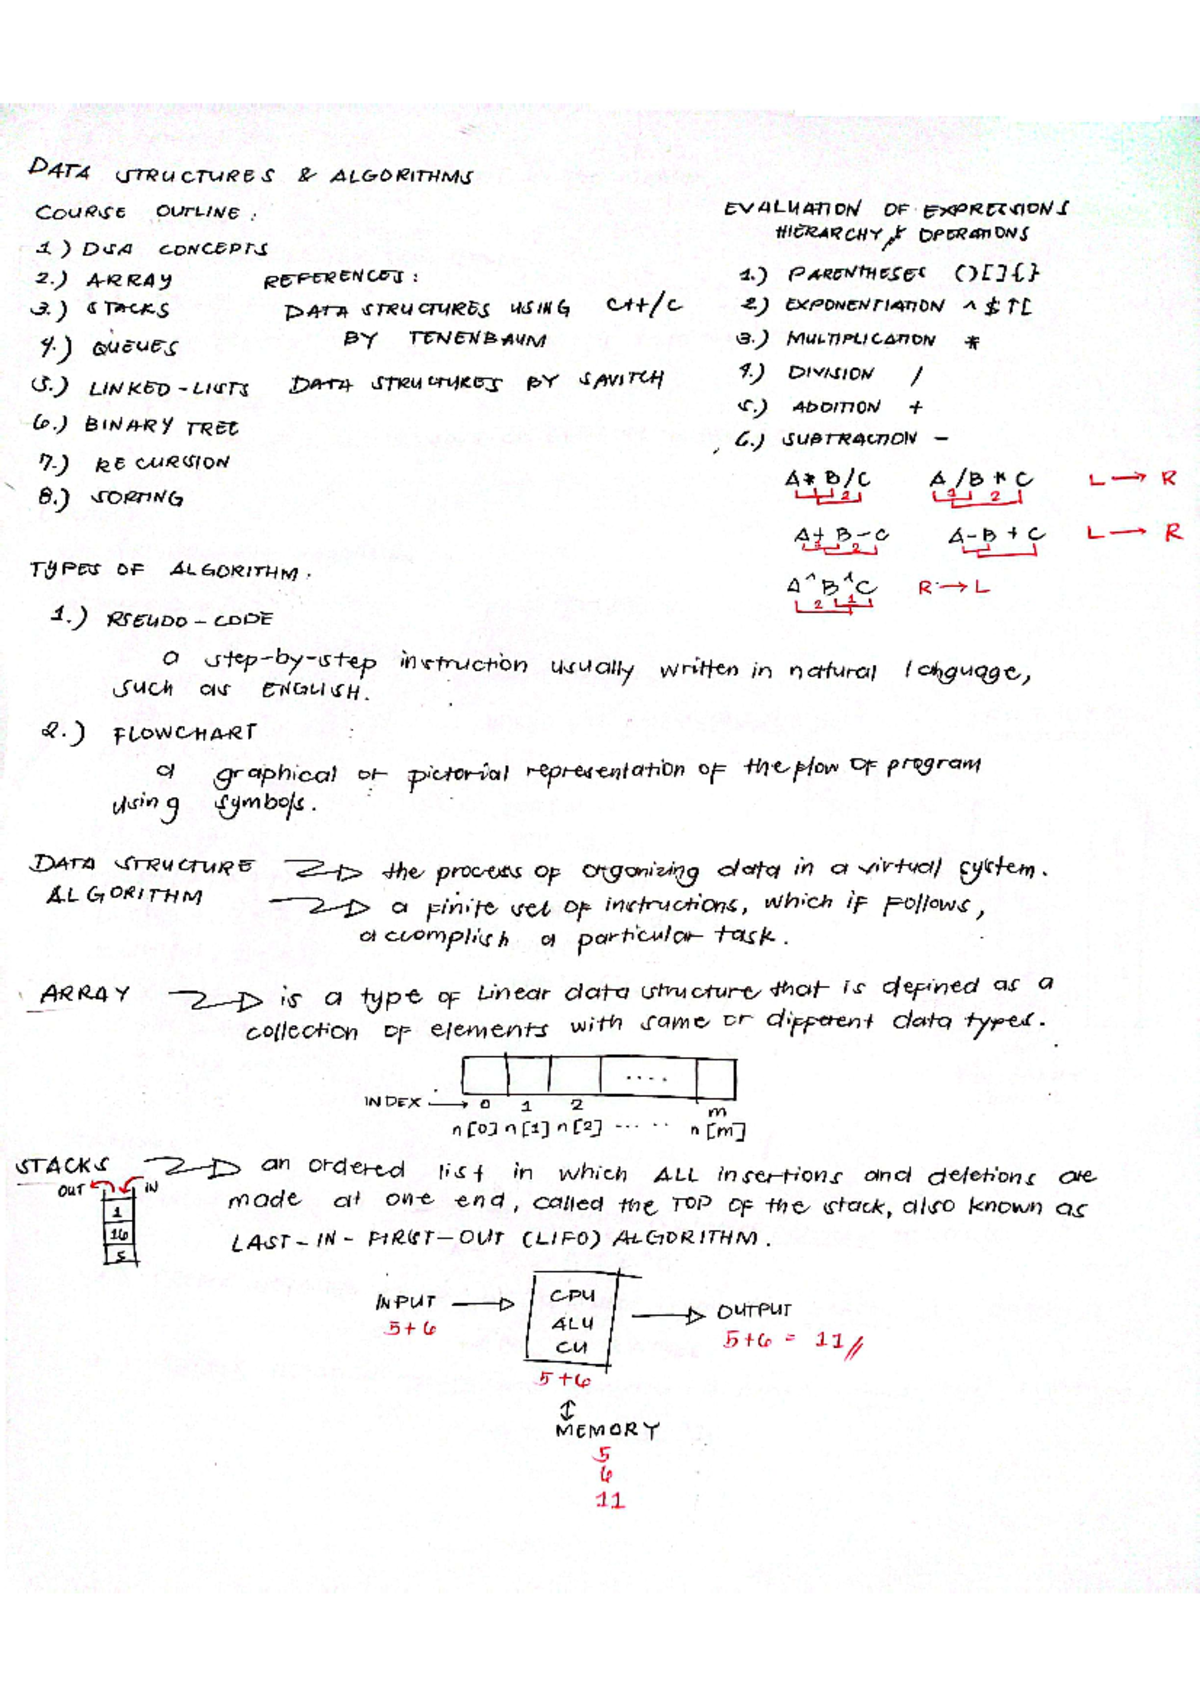 DATA STRUCTURES & ALGORITHMS
COURSE OUTLINE:
1.) DSA CONCEPTS
2.) ARRAY
3.) STACKS
4.) QUEUES
5.) LINKED-LISTS
6.) BINARY TREE
7.) RECURSION
8.) SORTING
REFERENCES:
DATA STRUCTURES USING C++/C
BY TENENBAUM
DATA STRUCTURES BY SAVITCH
EVALUATION OF EXPRESSIONS
HIERARCHY & OPERATIONS
1.) PARENTHESES ()[]{}
2.) EXPONENTIATION ^ $ ↑ [
3.) MULTIPLICATION *
4.) DIVISION /
5.) ADDITION +
6.) SUBTRACTION -
A * B / C A / B * C L → R
1 2 1 2
A + B - C A - B + C L → R
1 2
A ^ B ^ C R → L
2 1
TYPES OF ALGORITHM.
1.) PSEUDO-CODE
a step-by-step instruction usually written in natural language,
such as ENGLISH.
2.) FLOWCHART
a graphical or pictorial representation of the flow of program
using symbols.
DATA STRUCTURE → the process of organizing data in a virtual system.
ALGORITHM → a finite set of instructions, which if follows,
accomplish a particular task.
ARRAY → is a type of Linear data structure that is defined as a
collection of elements with same or different data types.
....
INDEX → 0 1 2 m
n[0] n[1] n[2] ..... n[m]
STACKS → an ordered list in which ALL insertions and deletions are
made at one end, called the TOP of the stack, also known as
LAST-IN-FIRST-OUT (LIFO) ALGORITHM.
OUT IN
1
16
5
INPUT → CPU → OUTPUT
5+6 ALU 5+6 = 11//
CU
5+6
↕
MEMORY
5
6
11